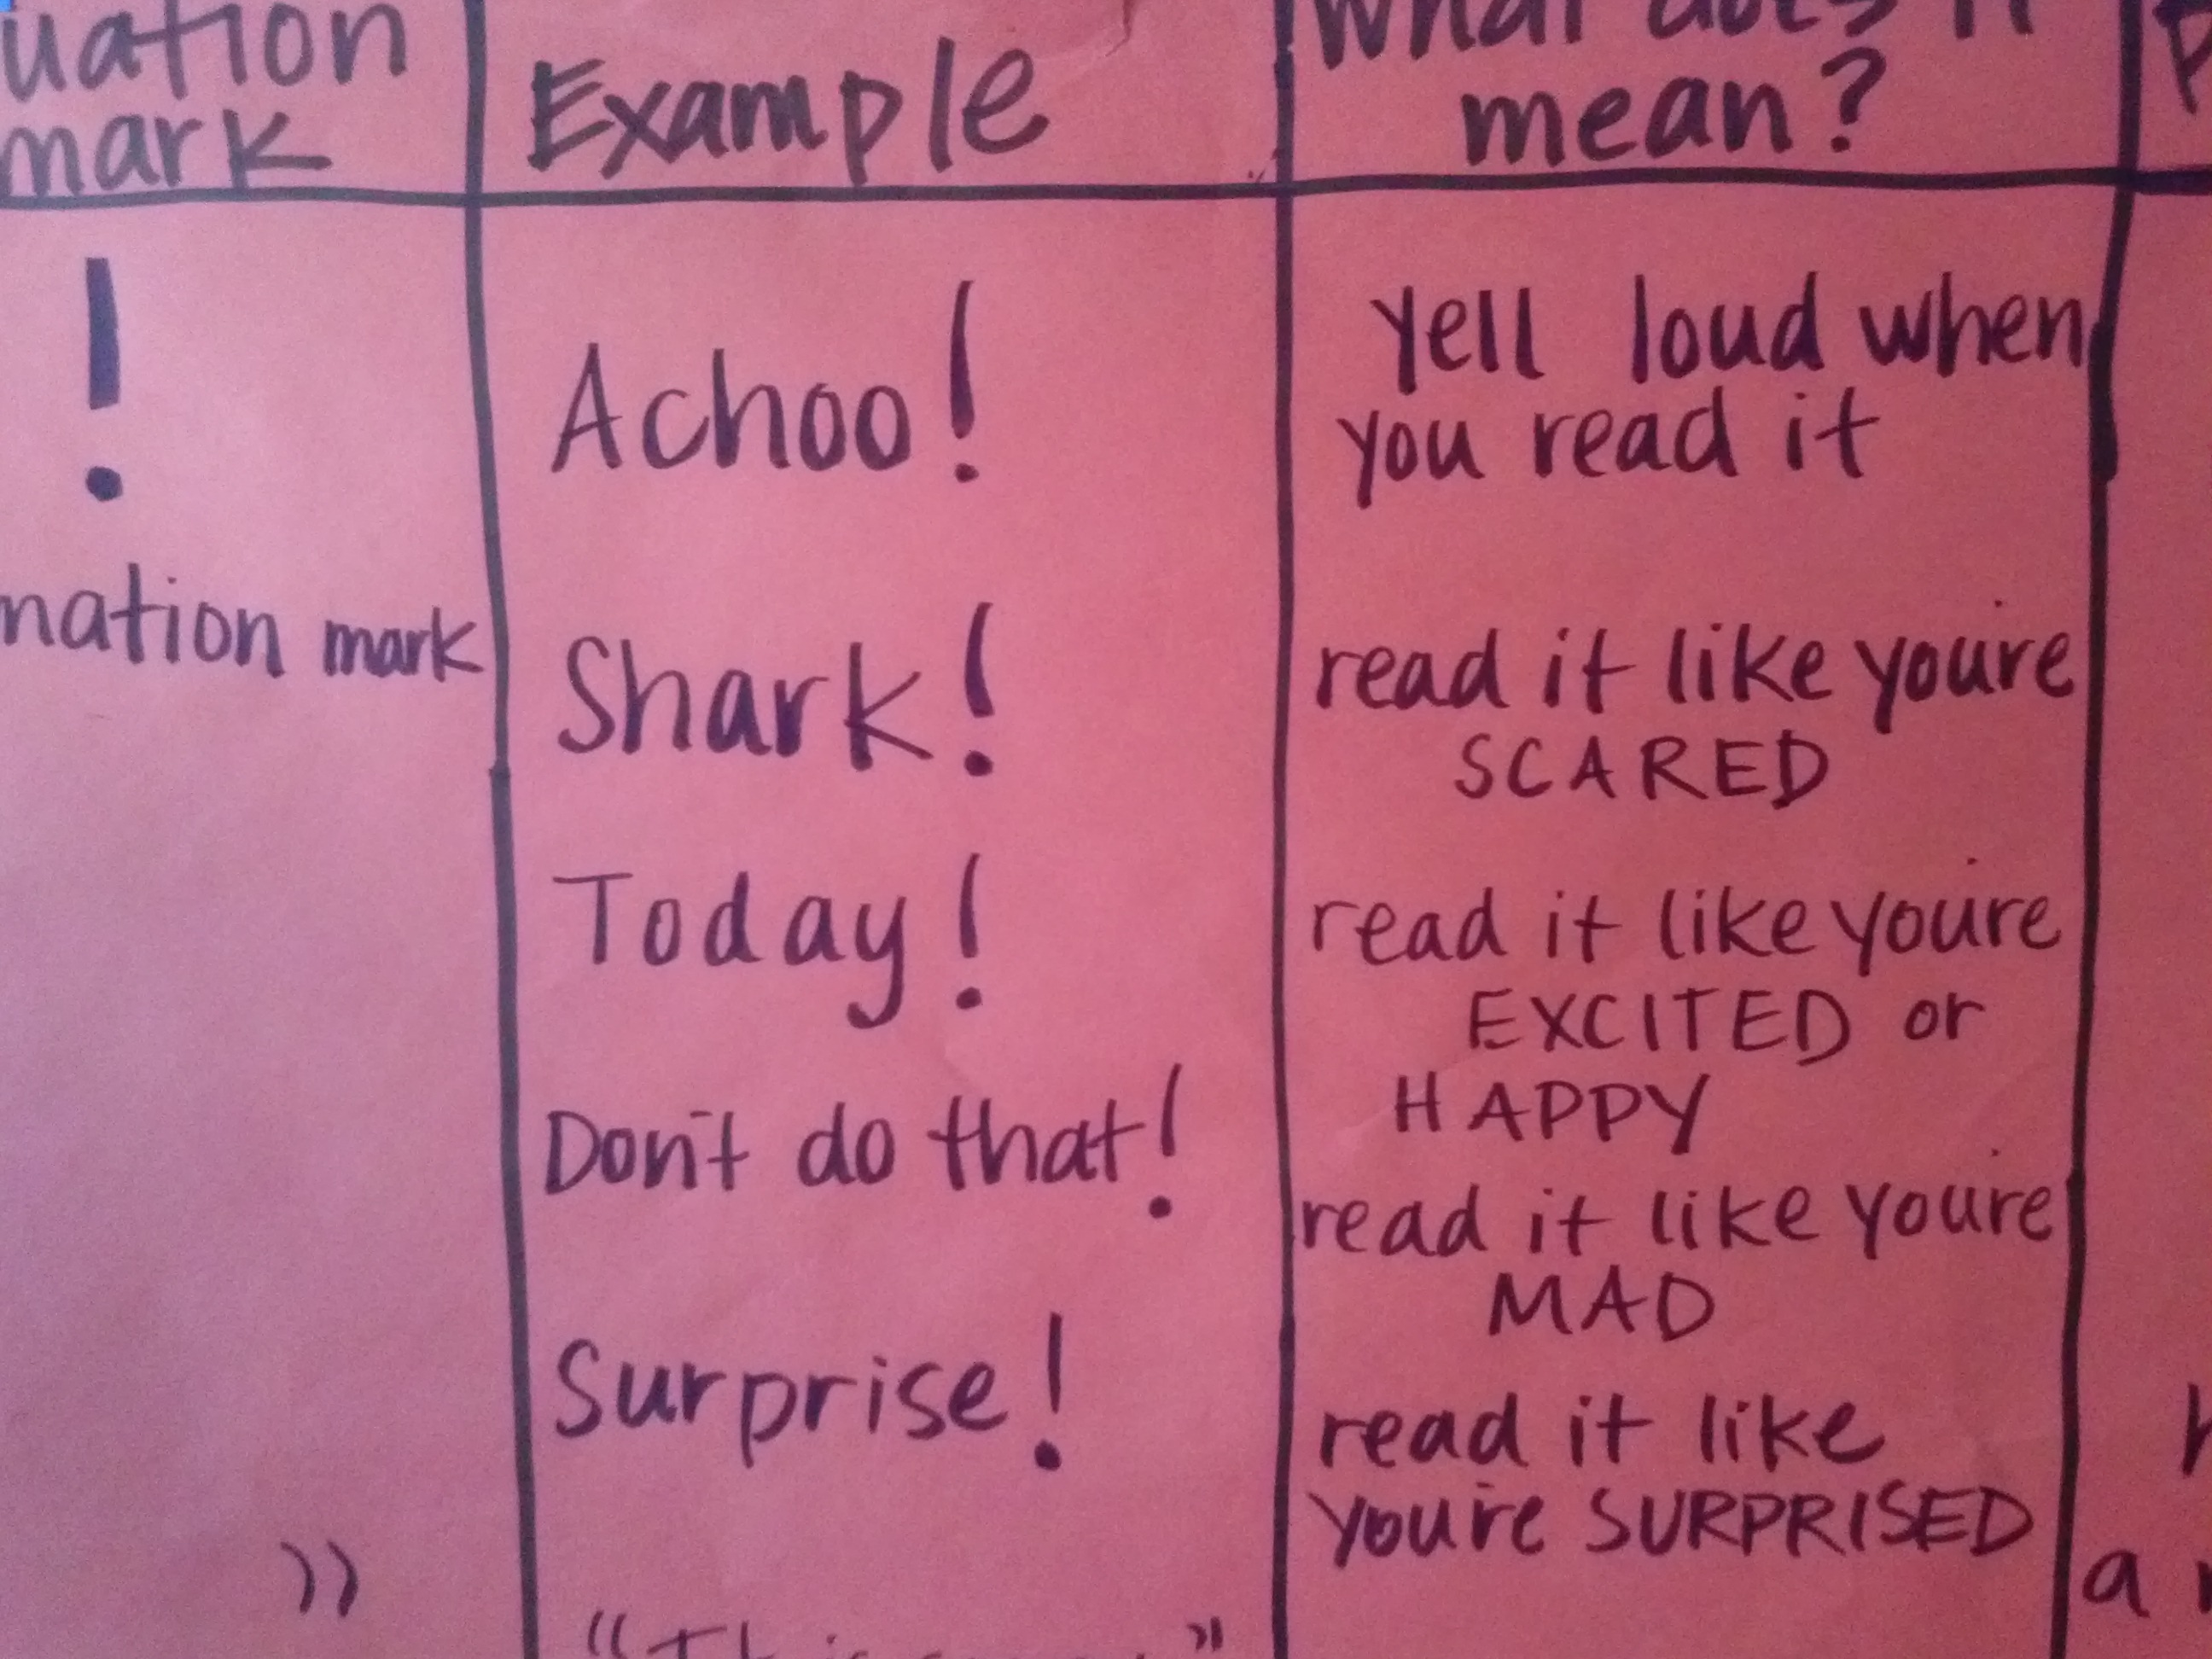 uation
mark
Example
What does it
mean?
!
nation mark
Achoo!
yell loud when
you read it
Shark!
read it like you're
SCARED
Today!
read it like you're
EXCITED or
HAPPY
Don't do that!
read it like you're
MAD
Surprise!
read it like
you're SURPRISED
”
“ ”
a